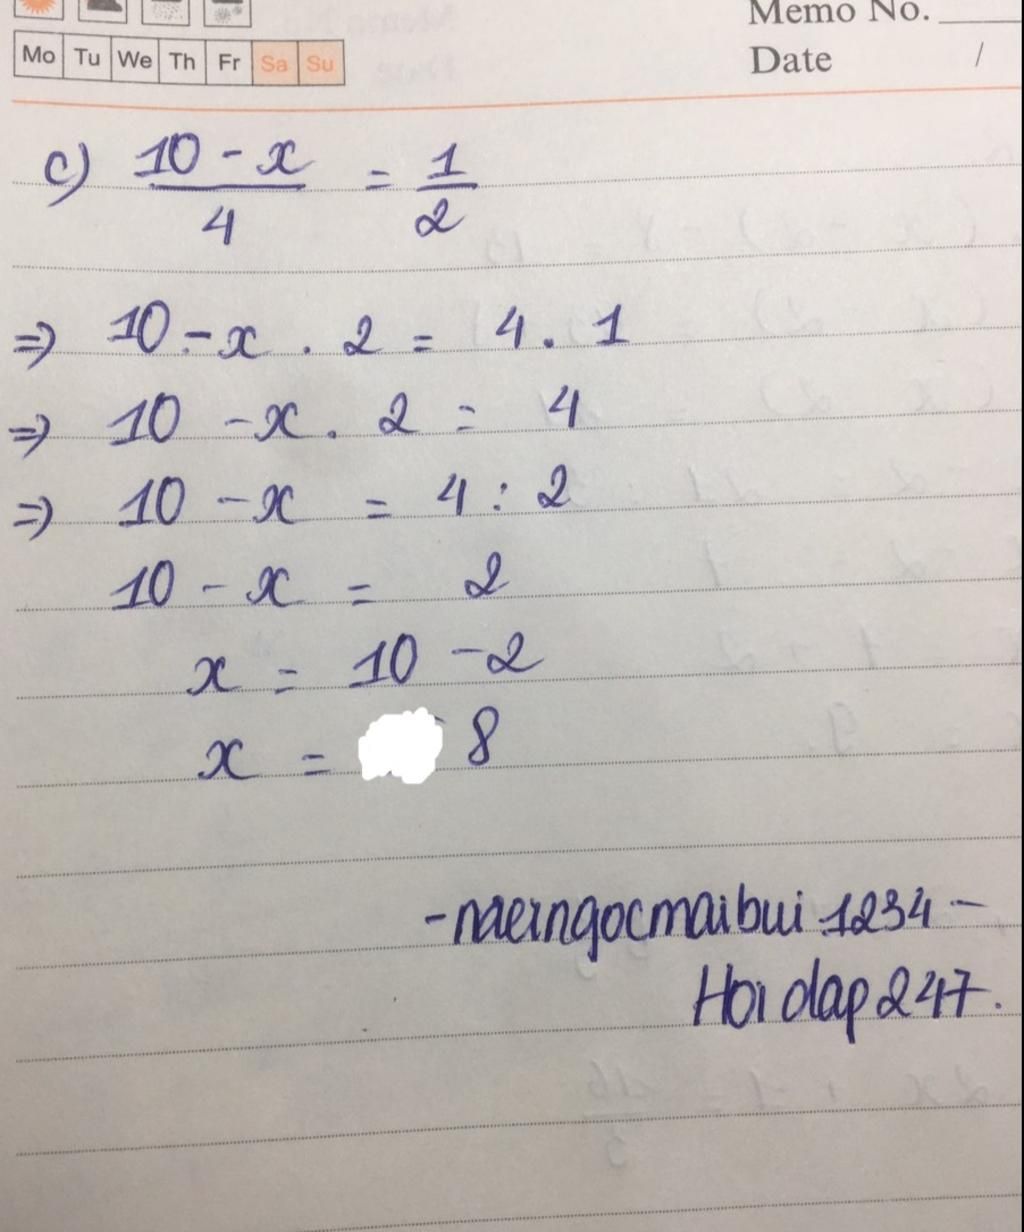 Memo No.
Mo Tu We Th Fr Sa Su
Date /
c) \frac{10 - x}{4} = \frac{1}{2}
⇒ 10 - x . 2 = 4 . 1
⇒ 10 - x . 2 = 4
⇒ 10 - x = 4 : 2
10 - x = 2
x = 10 - 2
x = 8
- naeingocmaibui 1234 -
Hoi dap 247.